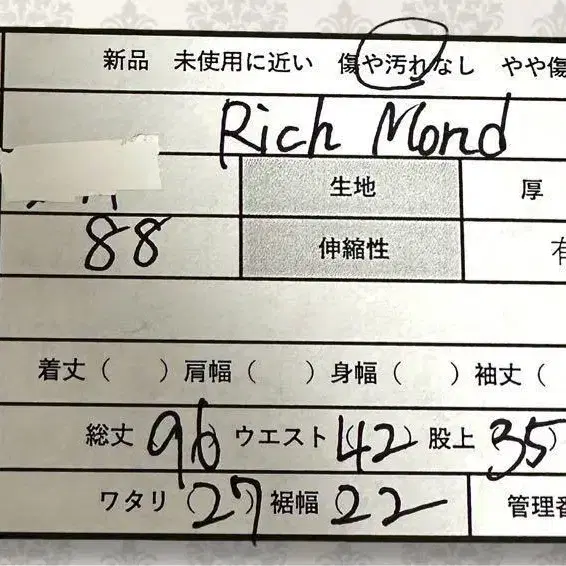 新品 未使用に近い 傷や汚れなし やや傷
Rich Mond
生地 厚
88 伸縮性 有
着丈( )肩幅( )身幅( )袖丈(
総丈(96)ウエスト(42)股上(35)
ワタリ(27)裾幅(22 管理番